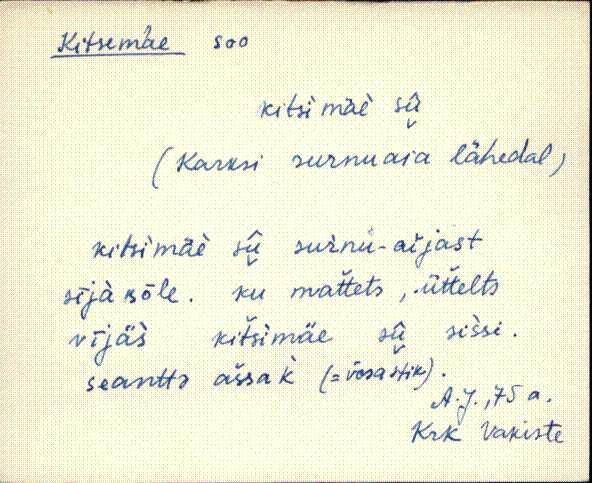 Kitsemäe soo
kitsimäè sû̬
(Karksi surnuaia lähedal)
kitsimäè sû̬ surnu-aījast
sījà pōle. ku mattets, üttelts
vījäs kitsimäe sû̬ sissi.
seantts assak̀ (= võsastik).
A.J., 75 a.
Krk Vakiste